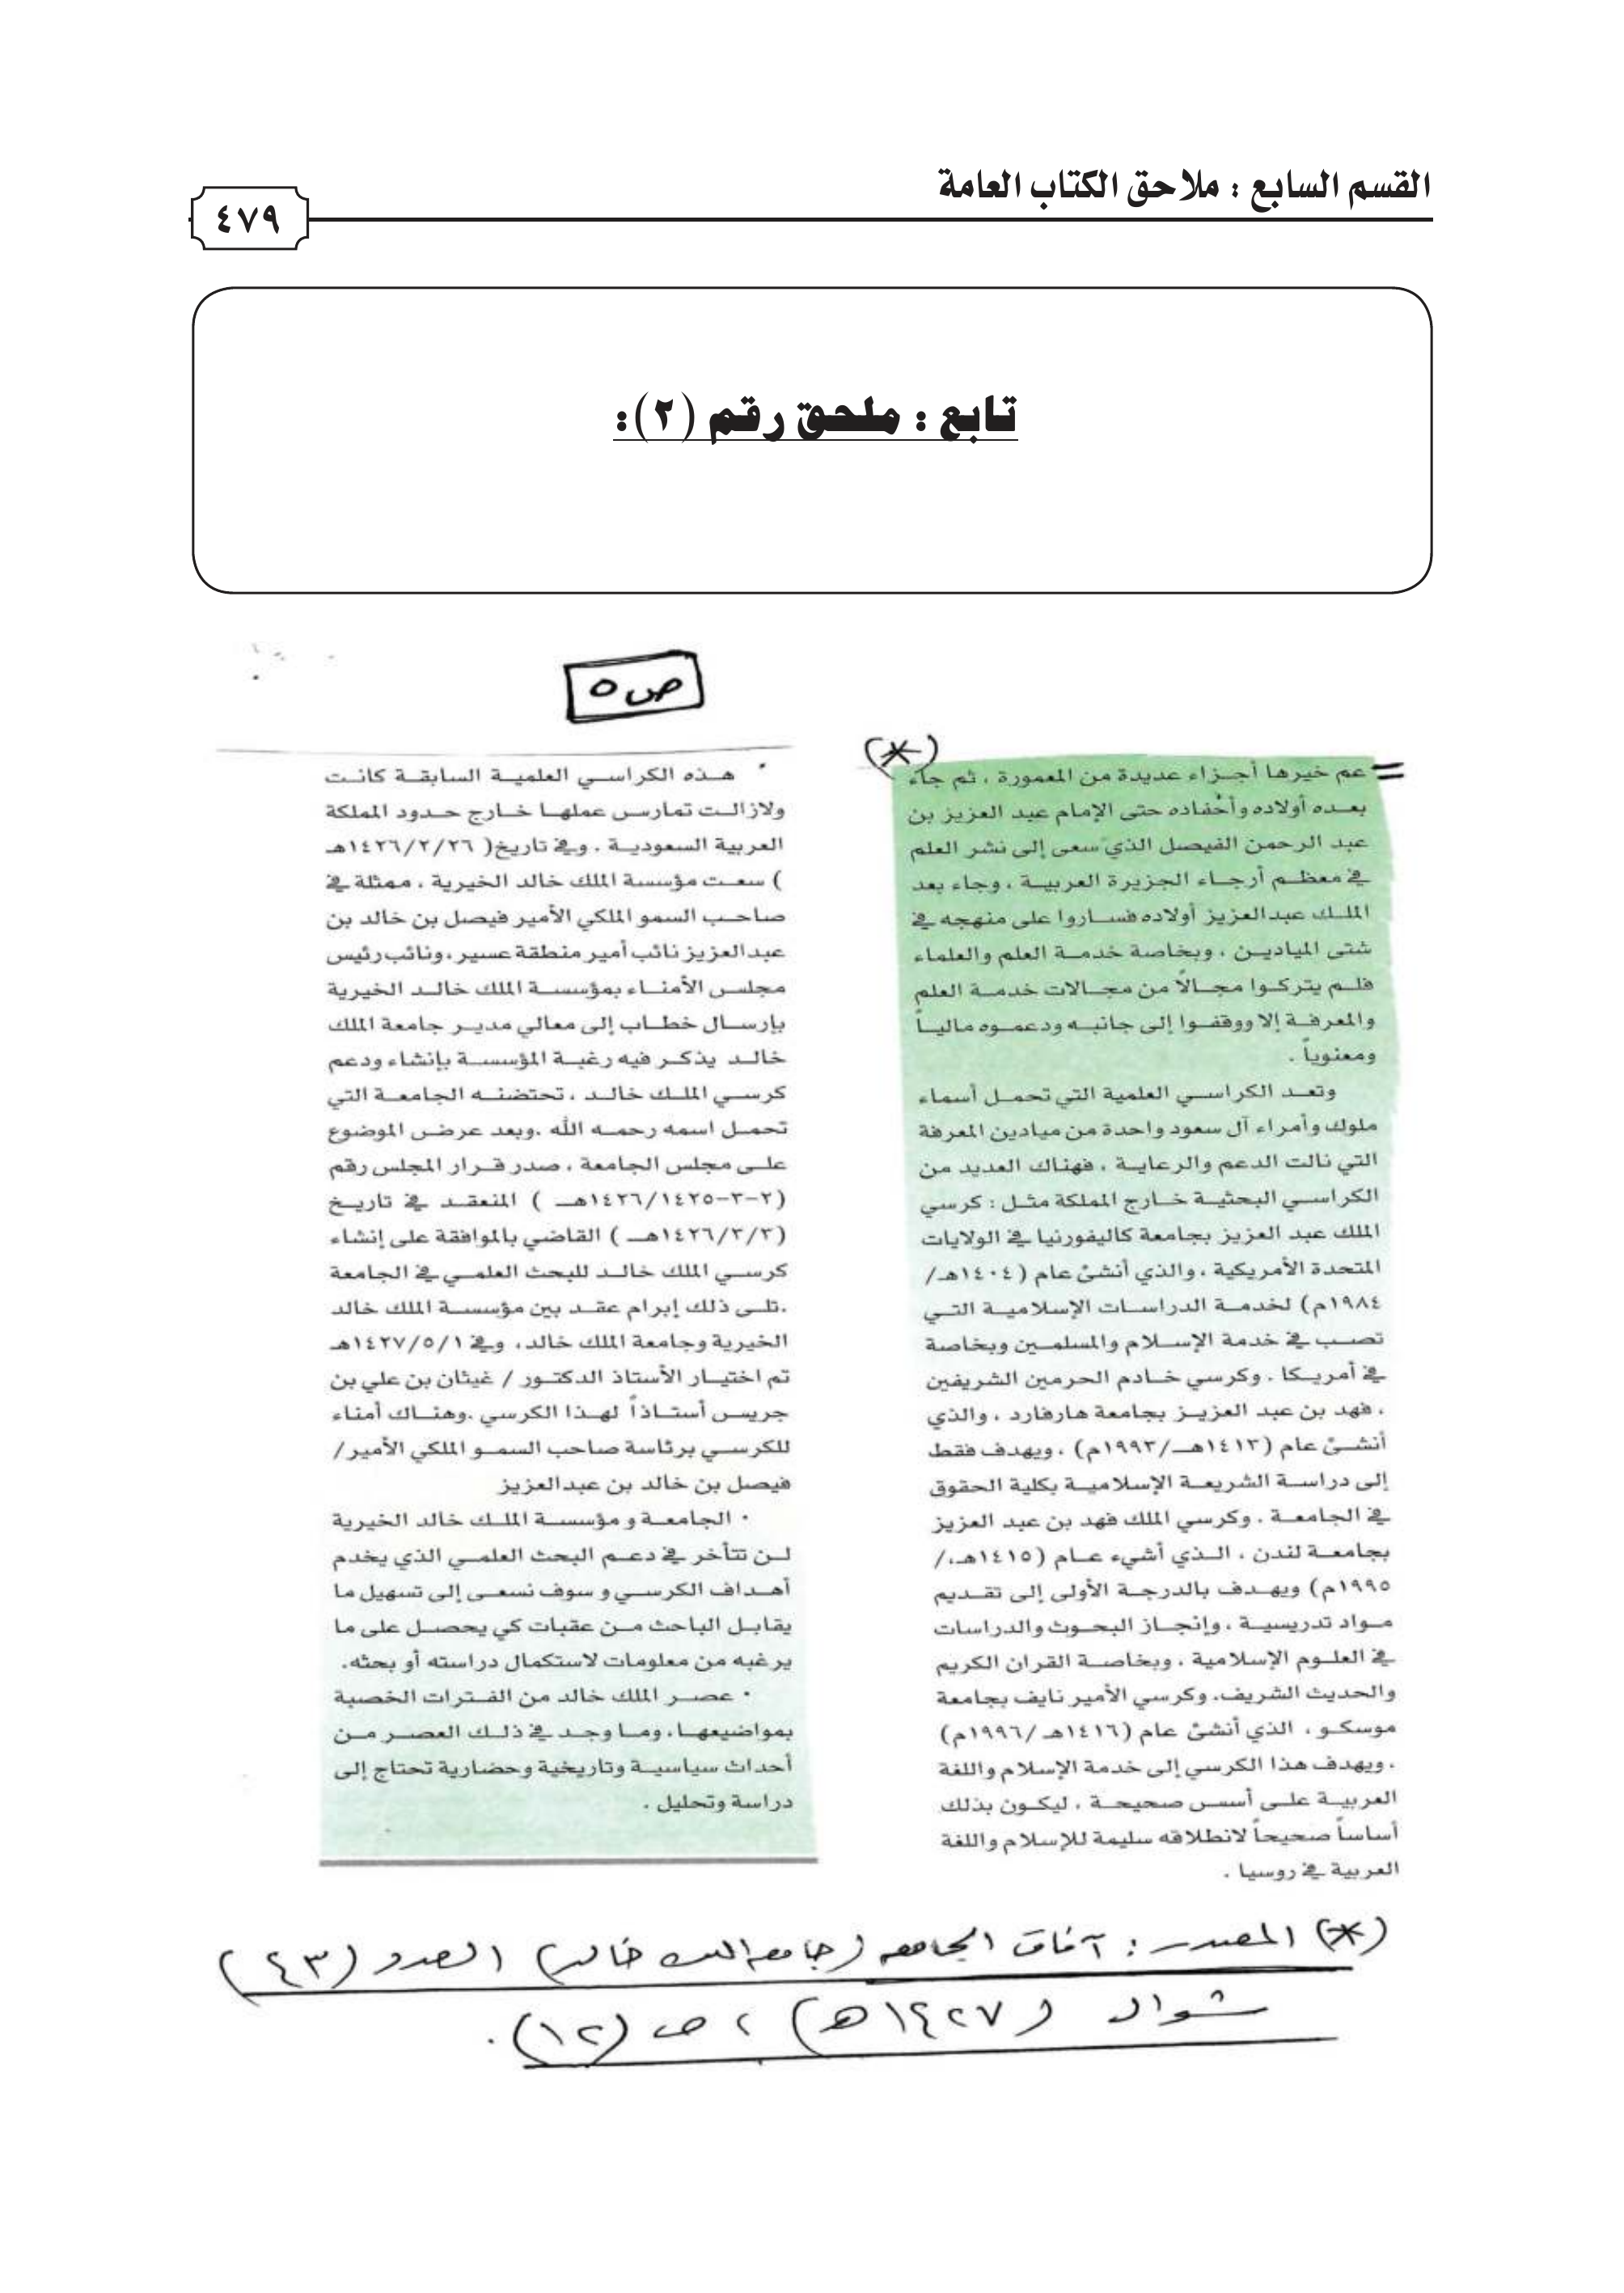 القسم السابع : ملاحق الكتاب العامة
٤٧٩
تابع : ملحق رقم (٢):
ص ٥
(*)
عم خيرها أجـزاء عديدة من المعمورة ، ثم جاء =
بعـده أولاده وأحفاده حتى الإمام عبد العزيز بن
عبد الرحمن الفيصل الذي سعى إلى نشر العلم
في معظـم أرجـاء الجزيرة العربيـة ، وجاء بعد
الملـك عبدالعزيز أولاده فسـاروا على منهجه في
شتى المياديـن ، وبخاصة خدمـة العلم والعلماء
فلـم يتركـوا مجـالاً من مجـالات خدمـة العلم
والمعرفـة إلا ووقفـوا إلى جانبـه ودعمـوه ماليـاً
ومعنوياً .
وتعـد الكراسـي العلمية التي تحمـل أسماء
ملوك وأمراء آل سعود واحدة من ميادين المعرفة
التي نالت الدعم والرعايـة ، فهناك العديد من
الكراسـي البحثيـة خـارج المملكة مثـل : كرسي
الملك عبد العزيز بجامعة كاليفورنيا في الولايات
المتحدة الأمريكية ، والذي أنشئ عام (١٤٠٤هـ/
١٩٨٤م) لخدمـة الدراسـات الإسلاميـة التـي
تصـب في خدمة الإسـلام والمسلمـين وبخاصة
في أمريـكا . وكرسي خـادم الحرمين الشريفين
، فهد بن عبد العزيـز بجامعة هارفارد ، والذي
أنشـئ عام (١٤١٣هـ/١٩٩٣م) ، ويهدف فقط
إلى دراسـة الشريعـة الإسلاميـة بكلية الحقوق
في الجامعـة . وكرسي الملك فهد بن عبد العزيز
بجامعـة لندن ، الـذي أشيء عـام (١٤١٥هـ./
١٩٩٥م) ويهـدف بالدرجـة الأولى إلى تقـديم
مـواد تدريسيـة ، وإنجـاز البحـوث والدراسات
في العلـوم الإسلامية ، وبخاصـة القران الكريم
والحديث الشريف. وكرسي الأمير نايف بجامعة
موسكـو ، الذي أنشئ عام (١٤١٦هـ /١٩٩٦م)
، ويهدف هذا الكرسي إلى خدمة الإسلام واللغة
العربيـة علـى أسـس صحيحـة ، ليكـون بذلك
أساساً صحيحاً لانطلاقه سليمة للإسلام واللغة
العربية في روسيا .
• هـذه الكراسـي العلميـة السابقـة كانـت
ولازالـت تمارس عملهـا خـارج حـدود المملكة
العربية السعوديـة . وفي تاريخ( ١٤٢٦/٢/٢٦هـ
) سعـت مؤسسـة الملك خالد الخيرية ، ممثلة في
صاحـب السمو الملكي الأمير فيصل بن خالد بن
عبدالعزيز نائب أمير منطقة عسير ، ونائب رئيس
مجلـس الأمنـاء بمؤسسـة الملك خالـد الخيرية
بإرسـال خطـاب إلى معالي مديـر جامعة الملك
خالـد يذكـر فيه رغبـة المؤسسـة بإنشاء ودعم
كرسـي الملـك خالـد ، تحتضنـه الجامعـة التي
تحمـل اسمه رحمـه الله .وبعد عرض الموضوع
علـى مجلس الجامعة ، صدر قـرار المجلس رقم
(٢-٣-١٤٢٦/١٤٢٥هـ ) المنعقـد في تاريـخ
(١٤٢٦/٣/٣هـ ) القاضي بالموافقة على إنشاء
كرسـي الملك خالـد للبحث العلمـي في الجامعة
.تلـى ذلك إبرام عقـد بين مؤسسـة الملك خالد
الخيرية وجامعة الملك خالد، وفي ١٤٢٧/٥/١هـ
تم اختيـار الأستاذ الدكتـور / غيثان بن علي بن
جريس أستـاذاً لهـذا الكرسي .وهنـاك أمناء
للكرسـي برئاسة صاحب السمـو الملكي الأمير/
فيصل بن خالد بن عبدالعزيز
• الجامعـة و مؤسسـة الملـك خالد الخيرية
لـن تتأخر في دعـم البحث العلمـي الذي يخدم
أهـداف الكرسي و سوف نسعـى إلى تسهيل ما
يقابـل الباحث مـن عقبات كي يحصـل على ما
يرغبه من معلومات لاستكمال دراسته أو بحثه.
• عصـر الملك خالد من الفـترات الخصبة
بمواضيعهـا، ومـا وجـد في ذلـك العصـر مـن
أحداث سياسيـة وتاريخية وحضارية تحتاج إلى
دراسة وتحليل .
(*) المصدر : آفاق الجامعة (جامعة الملك خالد) العدد (٤٣)
شوال (١٤٢٧هـ) ، ص (١٢) .